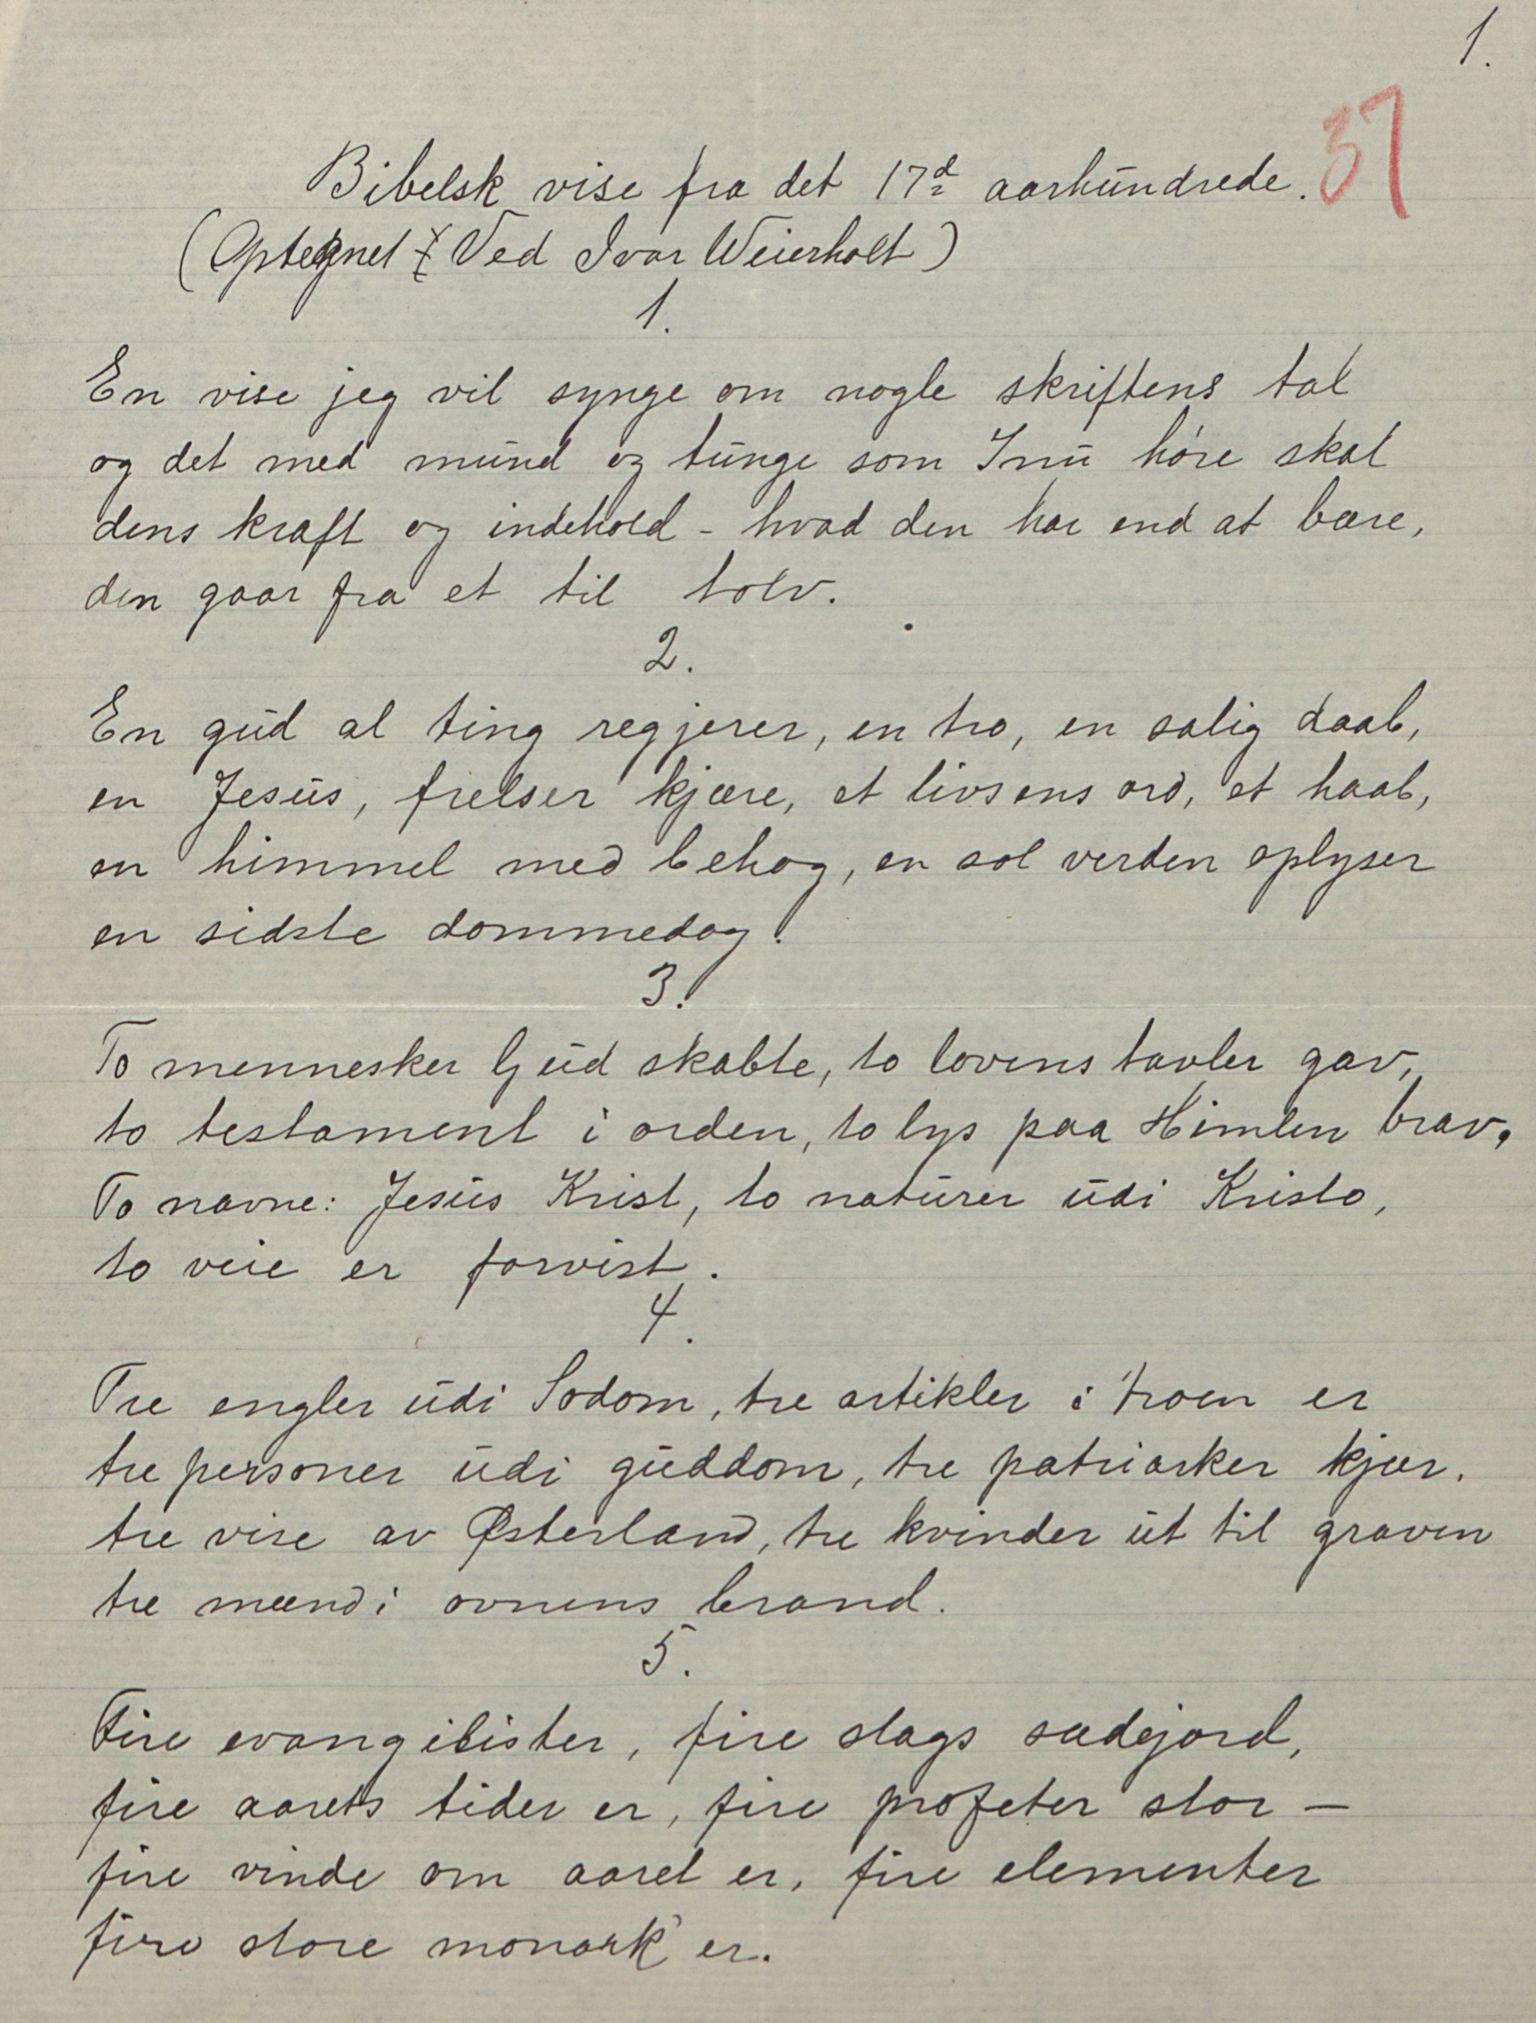 1.
37
Bibelsk vise fra det 17d aarhundrede.
(Optegnet Ved Ivar Weierholt)
1.
En vise jeg vil synge om nogle skriftens tal
og det med mund og tunge som I nu høre skal
dens kraft og indehold - hvad den har end at bære,
den gaar fra et til tolv.
2.
En gud al ting regjerer, en tro, en salig daab,
en Jesus, frelser kjære, et livsens ord, et haab,
en himmel med behag, en sol verden oplyser
en sidste dommedag.
3.
To mennesker Gud skabte, to lovens tavler gav,
to testament i orden, to lys paa Himlen brav,
To navne: Jesus Krist, to naturer udi Kristo,
to veie er forvist.
4.
Tre engler udi Sodom, tre artikler i troen er
tre personer udi guddom, tre patriarker kjær.
tre vise av Østerland, tre kvinder ut til graven
tre mænd i ovnens brand.
5.
Fire evangilister, fire slags sædejord,
fire aarets tider er, fire profeter stor —
fire vinde om aaret er, fire elementer
fire store monark'er.